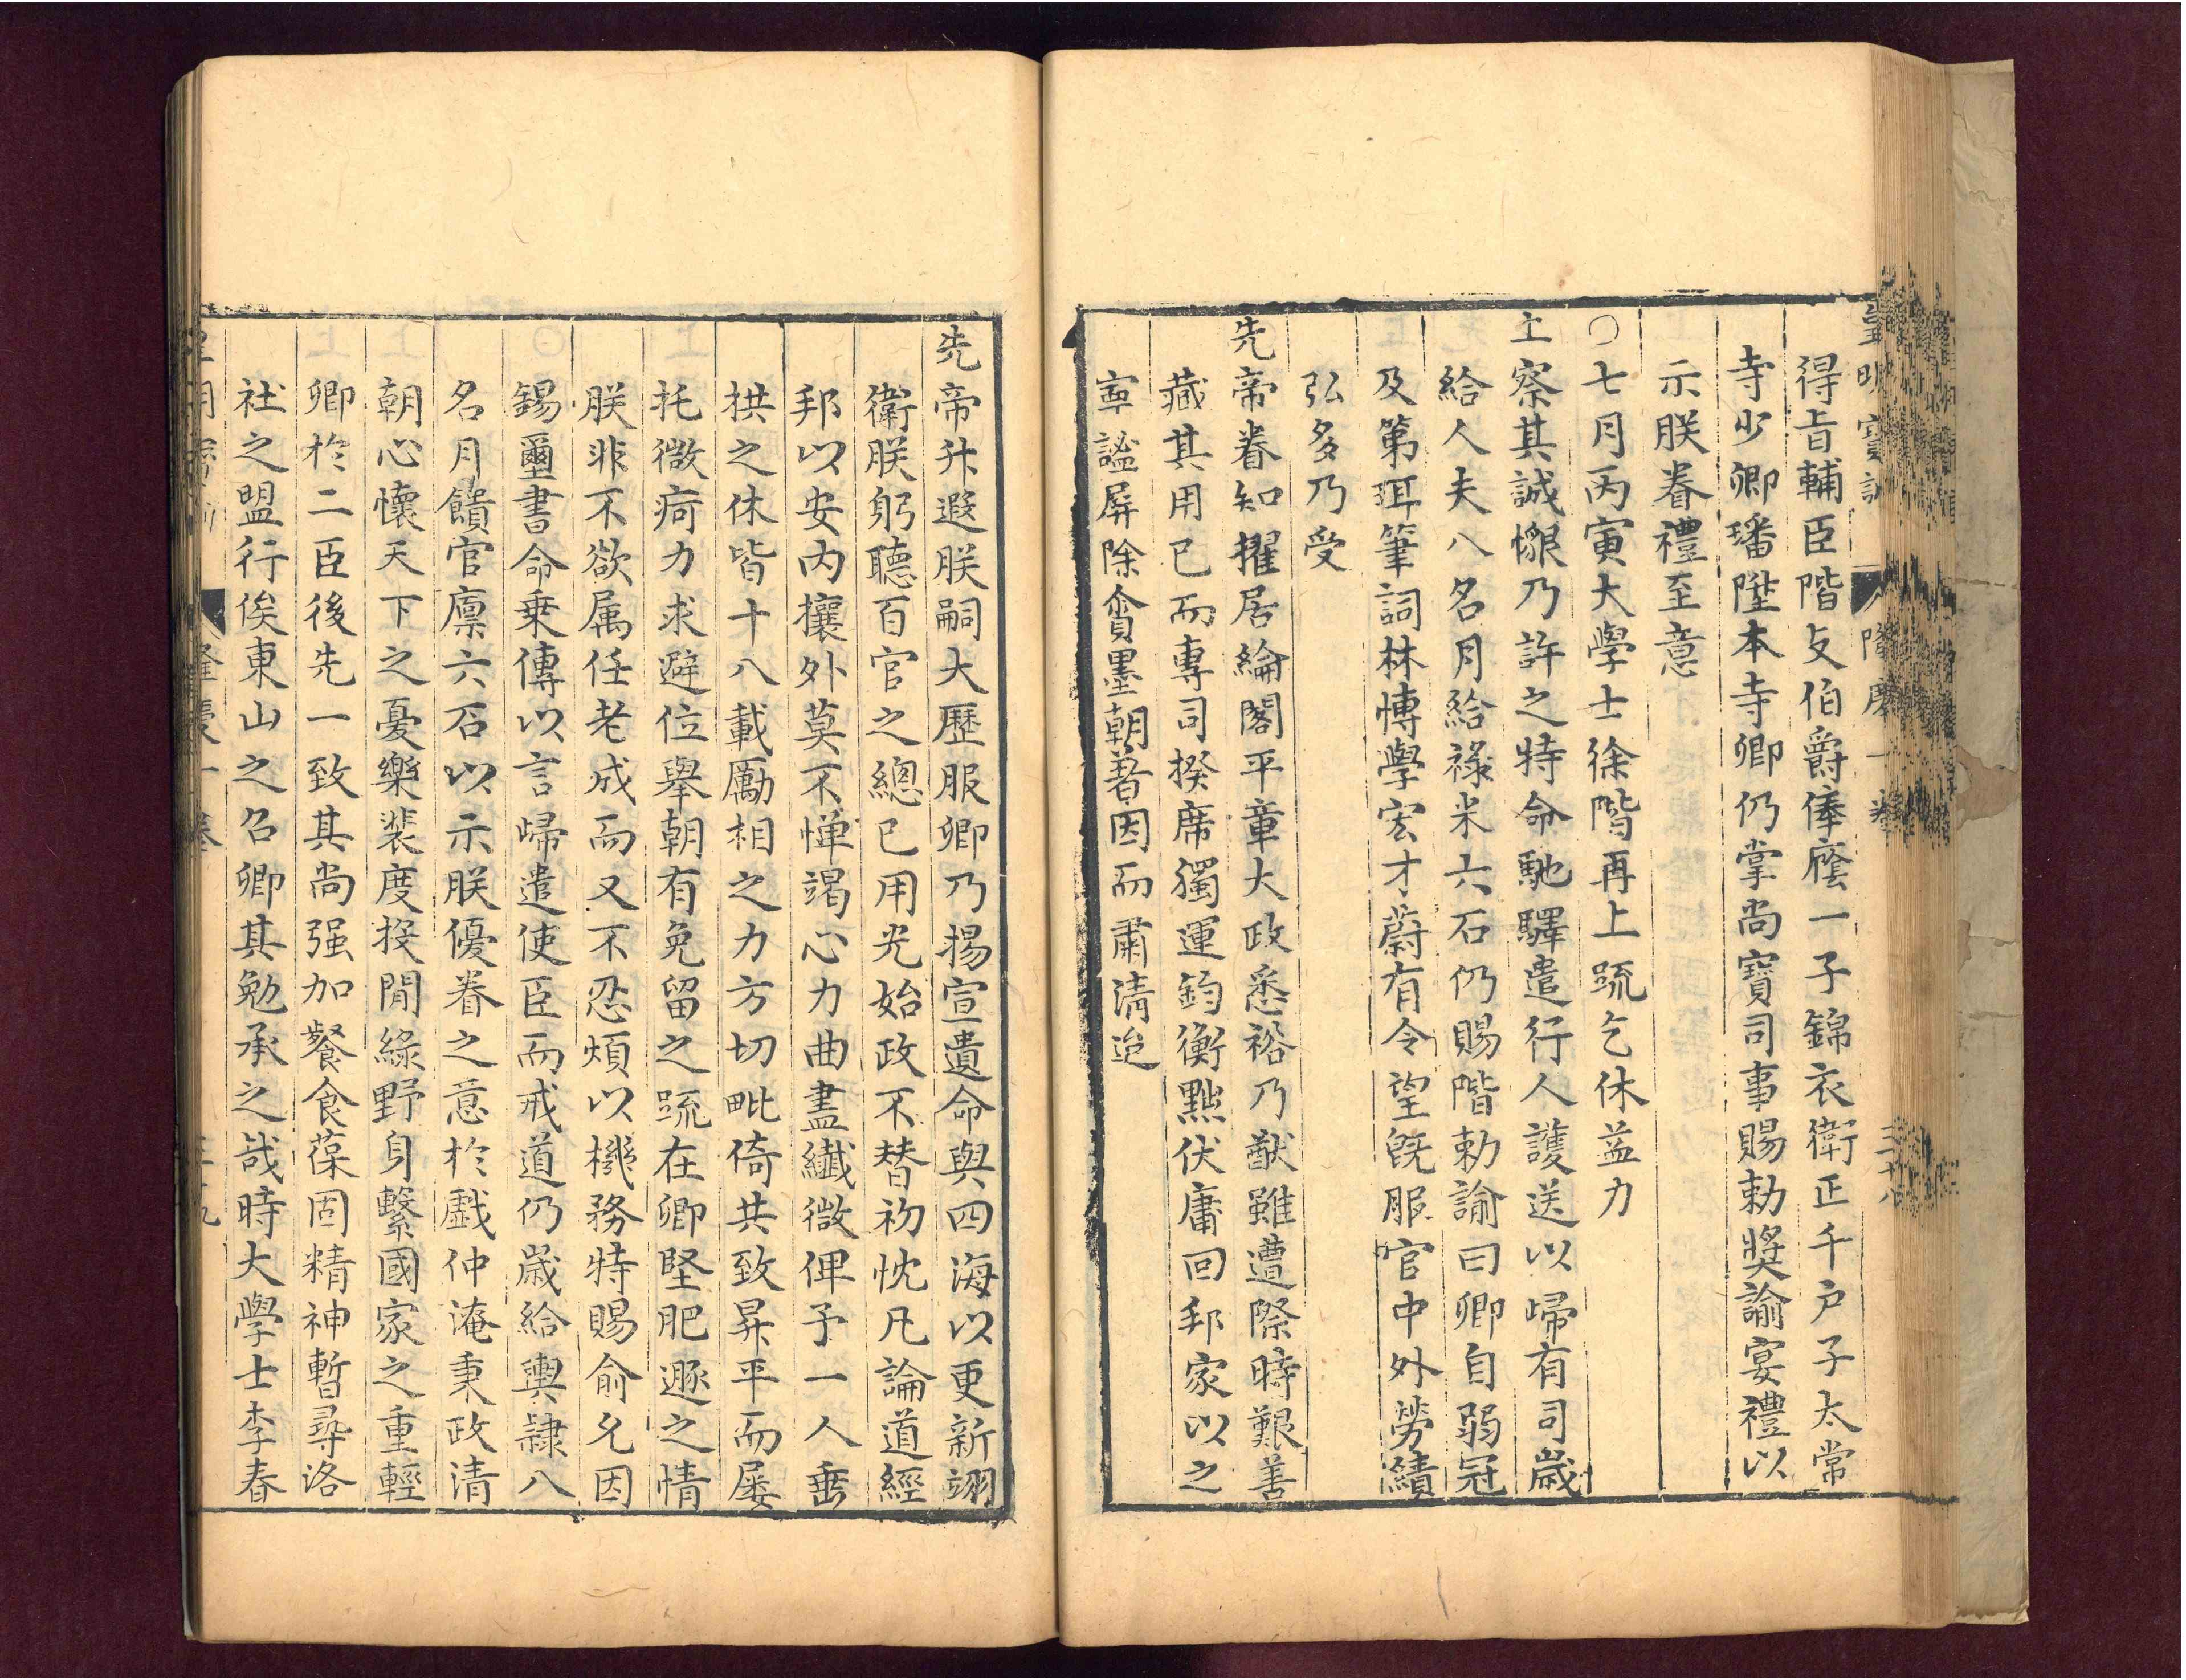 皇明寶訓 隆慶一卷 三十八
得旨輔臣階支伯爵俸廕一子錦衣衛正千戶子太常
寺少卿璠陞本寺卿仍掌尚寶司事賜勅獎諭宴禮以
示朕眷禮至意
○七月丙寅大學士徐階再上疏乞休益力
上察其誠懇乃許之特命馳驛遣行人護送以歸有司歲
給人夫八名月給祿米六石仍賜階勅諭曰卿自弱冠
及第珥筆詞林慱學宏才蔚有令望旣服官中外勞績
弘多乃受
先帝眷知擢居綸閣平章大政悉裕乃猷雖遭際時艱善
藏其用已而專司揆席獨運鈞衡黙伏庸回邦家以之
寧謐屏除貪墨朝著因而肅清迨
先帝升遐朕嗣大歷服卿乃揚宣遺命與四海以更新翊
衛朕躬聽百官之總已用光始政不替初忱凡論道經
邦以安内攘外莫不憚竭心力曲盡纖微俾予一人垂
拱之休皆十八載勵相之力方切毗倚共致昇平而屢
托微疴力求避位舉朝有免留之疏在卿堅肥遯之情
朕非不欲属任老成而又不忍煩以機務特賜俞允因
錫璽書命乗傳以言歸遣使臣而戒道仍歲給輿隷八
名月饋官廪六石以示朕優眷之意於戲仲淹秉政清
朝心懷天下之憂樂裴度投閒綠野身繫國家之重輕
卿於二臣後先一致其尚强加餐食葆固精神暫尋洛
社之盟行俟東山之召卿其勉承之哉時大學士李春
隆慶一卷 三十九